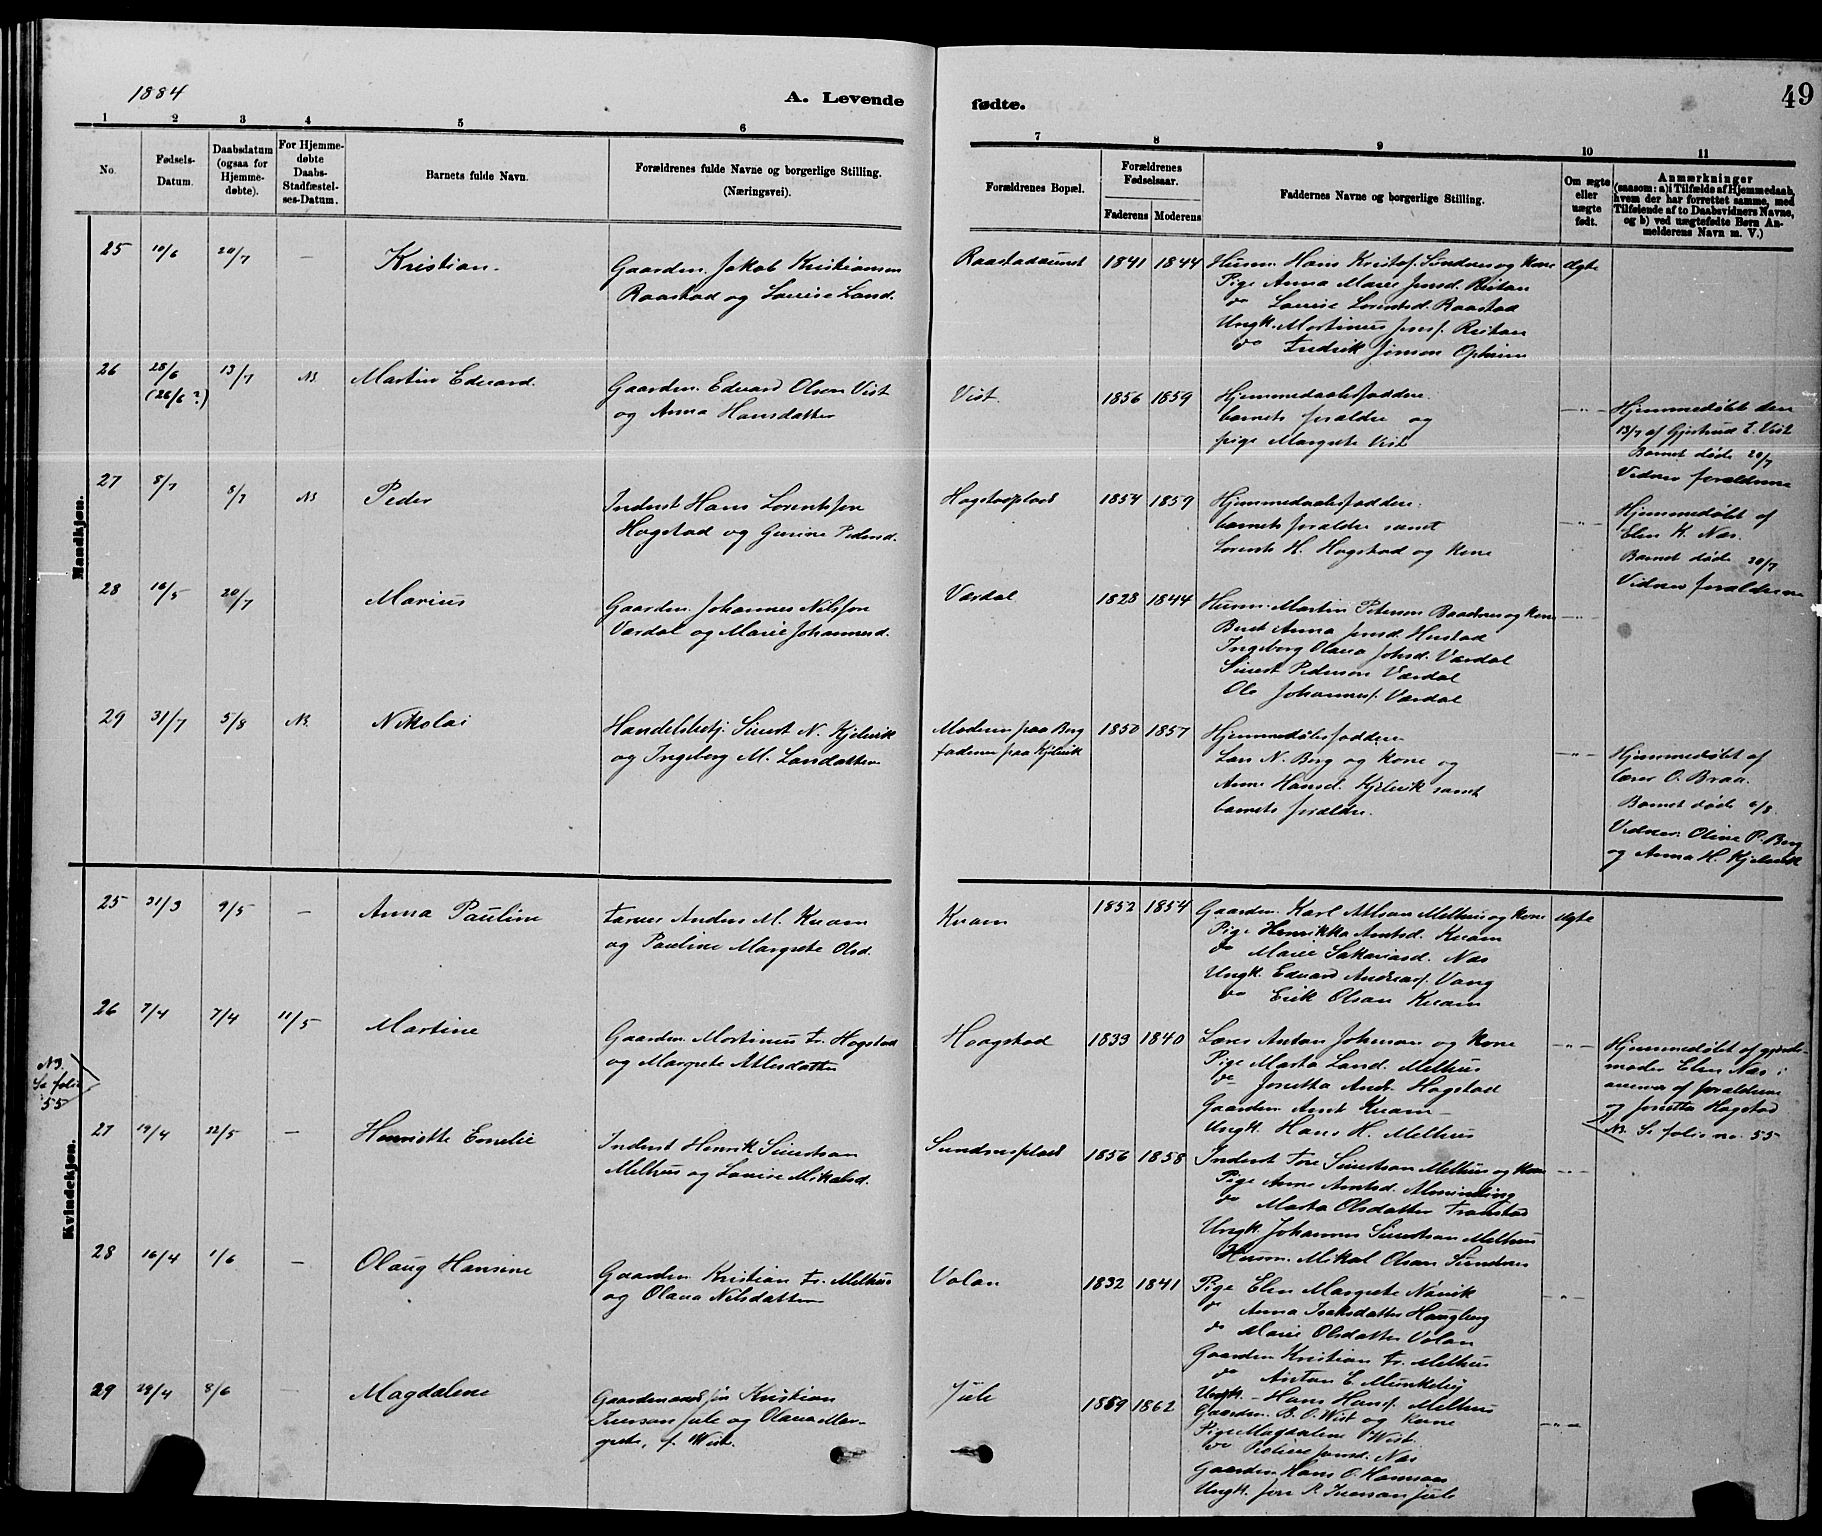 1884
A. Levende
fødte.
49
1 2 3 4 5 6 7 8 9 10 11
No.
Fødsels-
Datum.
Daabsdatum
(ogsaa for
Hjemme-
døbte).
For Hjemme-
døbte
Daabs-
Stadfæstel-
ses-Datum.
Barnets fulde Navn.
Forældrenes fulde Navne og borgerlige Stilling.
(Næringsvei).
Forældrenes Bopæl.
Forældrenes
Fødselsaar.
Faderens
Moderens
Faddernes Navne og borgerlige Stilling.
Om ægte
eller
uægte
født.
Anmærkninger
(saasom: a) i Tilfælde af Hjemmedaab,
hvem der har forrettet samme, med
Tilføiende af to Daabsvidners Navne,
og b) ved uægtefødte Børn An-
melderens Navn m. V.)
Mandkjøn.
25 10/6 20/7 — Kristian.
Gaardm. Jakob Kristiansen
Raastad og Lovise Land.
Raastadaunet 1841 1844
Husm. Hans Kristof. Sundnes og Kone
Pige Anna Marie Jensd. Reitan
do Lovise Lorentsd. Raastad
Ungk. Martinus Jens. Reitan
do Fredrik Jönsen Opheim
ægte
26 28/6 (26/6?) 13/7 NB. Martin Edvard.
Gaardm. Edvard Olsen Vist
og Anna Hansdatter
Vist 1856 1859
Hjemmedaabsfaddere.
barnets forældre og
pige Margrete Vist
— " —
Hjemmedøbt den
13/7 af Gjertrud E. Vist
Barnet døde 20/7
Vidner forældrene
27 8/7 8/7 NB Peder
Inderst Hans Lorentsen
Hogstad og Gurine Pedersd.
Hogstadplads 1854 1859
Hjemmedaabsfaddere:
barnets forældre samt
Lorents H. Hogstad og Kone
— " —
Hjemmedøbt af
Elen K. Næs.
Barnet døde 20/7
Vidner forældrene
28 16/5 20/7 Marius
Gaardm. Johannes Nilssen
Værdal og Marie Johannesd.
Værdal 1828 1844
Husm. Martin Petersen Baadsnes og Kone
Beret Anna Jensd. Hustad
Ingeborg Olava Johsd. Værdal
Sivert Pedersen Værdal
Ole Johannes. Værdal
— " —
29 31/7 5/8 NB. Nikolai
Handelsbetj. Sivert N. Kjelvik
og Ingeborg M. Larsdatter
Moderen paa Berg
faderen paa Kjelvik
1850 1857
Hjemmedøbtsfaddere
Lars N. Berg og Kone og
Anne Hansd. Kjelvik samt
barnets forældre.
— " —
Hjemmedøbt af
lærer O. Braa.
Barnet døde 6/8.
Vidner: Oline P. Berg
og Anna H. Kjelvik
Kvindekjøn.
25 31/3 9/5 — Anna Pauline
Farver Anders M. Kvam
og Pauline Margrete Olsd.
Kvam 1852 1854
Gaardm. Karl Atlsen Melhus og Kone
Pige Henrikka Arntsd. Kvam
do Marie Sakariasd. Næs
Ungk. Edvard Andreas. Vang
do Erik Olsen Kvam
ægte
26 7/4 7/4 11/5 Martine
Gaardm. Martinus Fr. Hogstad
og Margrete Atlesdatter
Haagstad 1839 1840
Lærer Anton Johnsen og Kone
Pige Marta Land. Melhus
do Jonetta Andr. Hogstad
Gaardm. Arnt Kvam —
Ungk. Hans H. Melhus
— " —
Hjemmedøbt af gjorde-
moder Elen Næs i
nærvær af forældrene
og Jonetta Hogstad
NB. Se folio no. 55
NB.
Se folio
55
27 14/4 22/5 — Henriette Emelie
Inderst Henrik Sivertsen
Melhus og Lovise Mikalsd.
Sundnesplads 1856 1858
Inderst Tore Sivertsen Melhus og Kone
Pige Anne Arntsd. Almenning
do Marta Olsdatter Transtad
Ungk. Johannes Sivertsen Melhus
Husm. Mikal Olsen Sundnes
— " —
28 16/4 1/6 — Olaug Hansine
Gaardm. Kristian Fr. Melhus
og Olava Nilsdatter
Volan 1832 1841
Pige Elen Margrete Nævik
do Anna Isaksdatter Haugberg
do Marie Olsdatter Volan
Gaardm. Kristian Fr. Melhus
do Anton E. Munkeby
Ungk. — Hans Hans. Melhus
— " —
29 29/4 8/6 — Magdalene
Gaardmandssøn Kristian
Iversen Jule og Olava Mar-
grete, f. Wist.
Jule 1859 1862
Gaardm. B. O. Wist og Kone
Pige Magdalene Wist
do Peoline Jensd. Næs
Gaardm. Hans O. Hansen
Ungk. Jon P. Iversen Jule
— " —